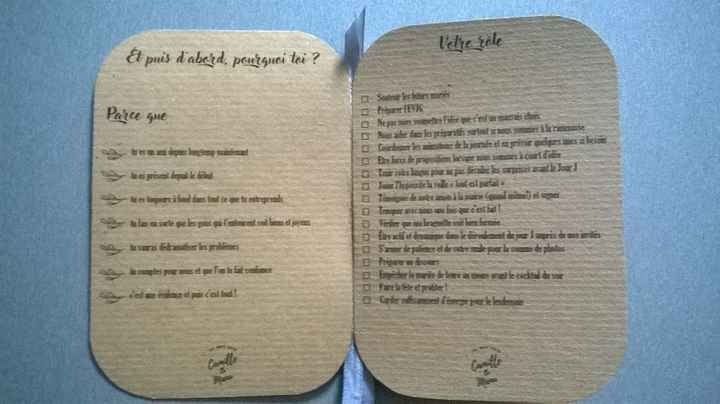 Et puis d'abord, pourquoi toi ?
Parce que
tu es un ami depuis longtemp maintenant
tu es présent depuit le début
tu es toujours à fond dans tout ce que tu entreprends
tu fais en sorte que les gens qui t'entourent soit biens et joyeux
tu sauras dédramatiser les problèmes
tu comptes pour nous et que l'on te fait confiance
c'est une évidence et puis c'est tout !
Camille
&
Votre rôle
Soutenir les futurs mariés
Préparer l'EVJG
Ne pas nous soumettre l'idée que c'est un mauvais choix
Nous aider dans les préparatifs surtout si nous sommes à la ramasse
Coordonner les animations de la journée et en prévoir quelques unes si besoin
Etre force de propositions lorsque nous sommes à court d'idée
Tenir votre langue pour ne pas dévoiler les surprises avant le Jour J
Jouer l'hypocrite la veille « tout est parfait »
Témoigner de notre amour à la mairie (quand même!) et signer
Trinquer avec nous une fois que c'est fait !
Vérifier que ma braguette soit bien fermée
Être actif et dynamique dans le déroulement du jour J auprès de mes invités
S'armer de patience et de votre smile pour la séance de photos
Préparer un discours
Empêcher la mariée de boire au moins avant le cocktail du soir
Faire la fête et profiter !
Garder suffisamment d'énergie pour le lendemain
Camille
&